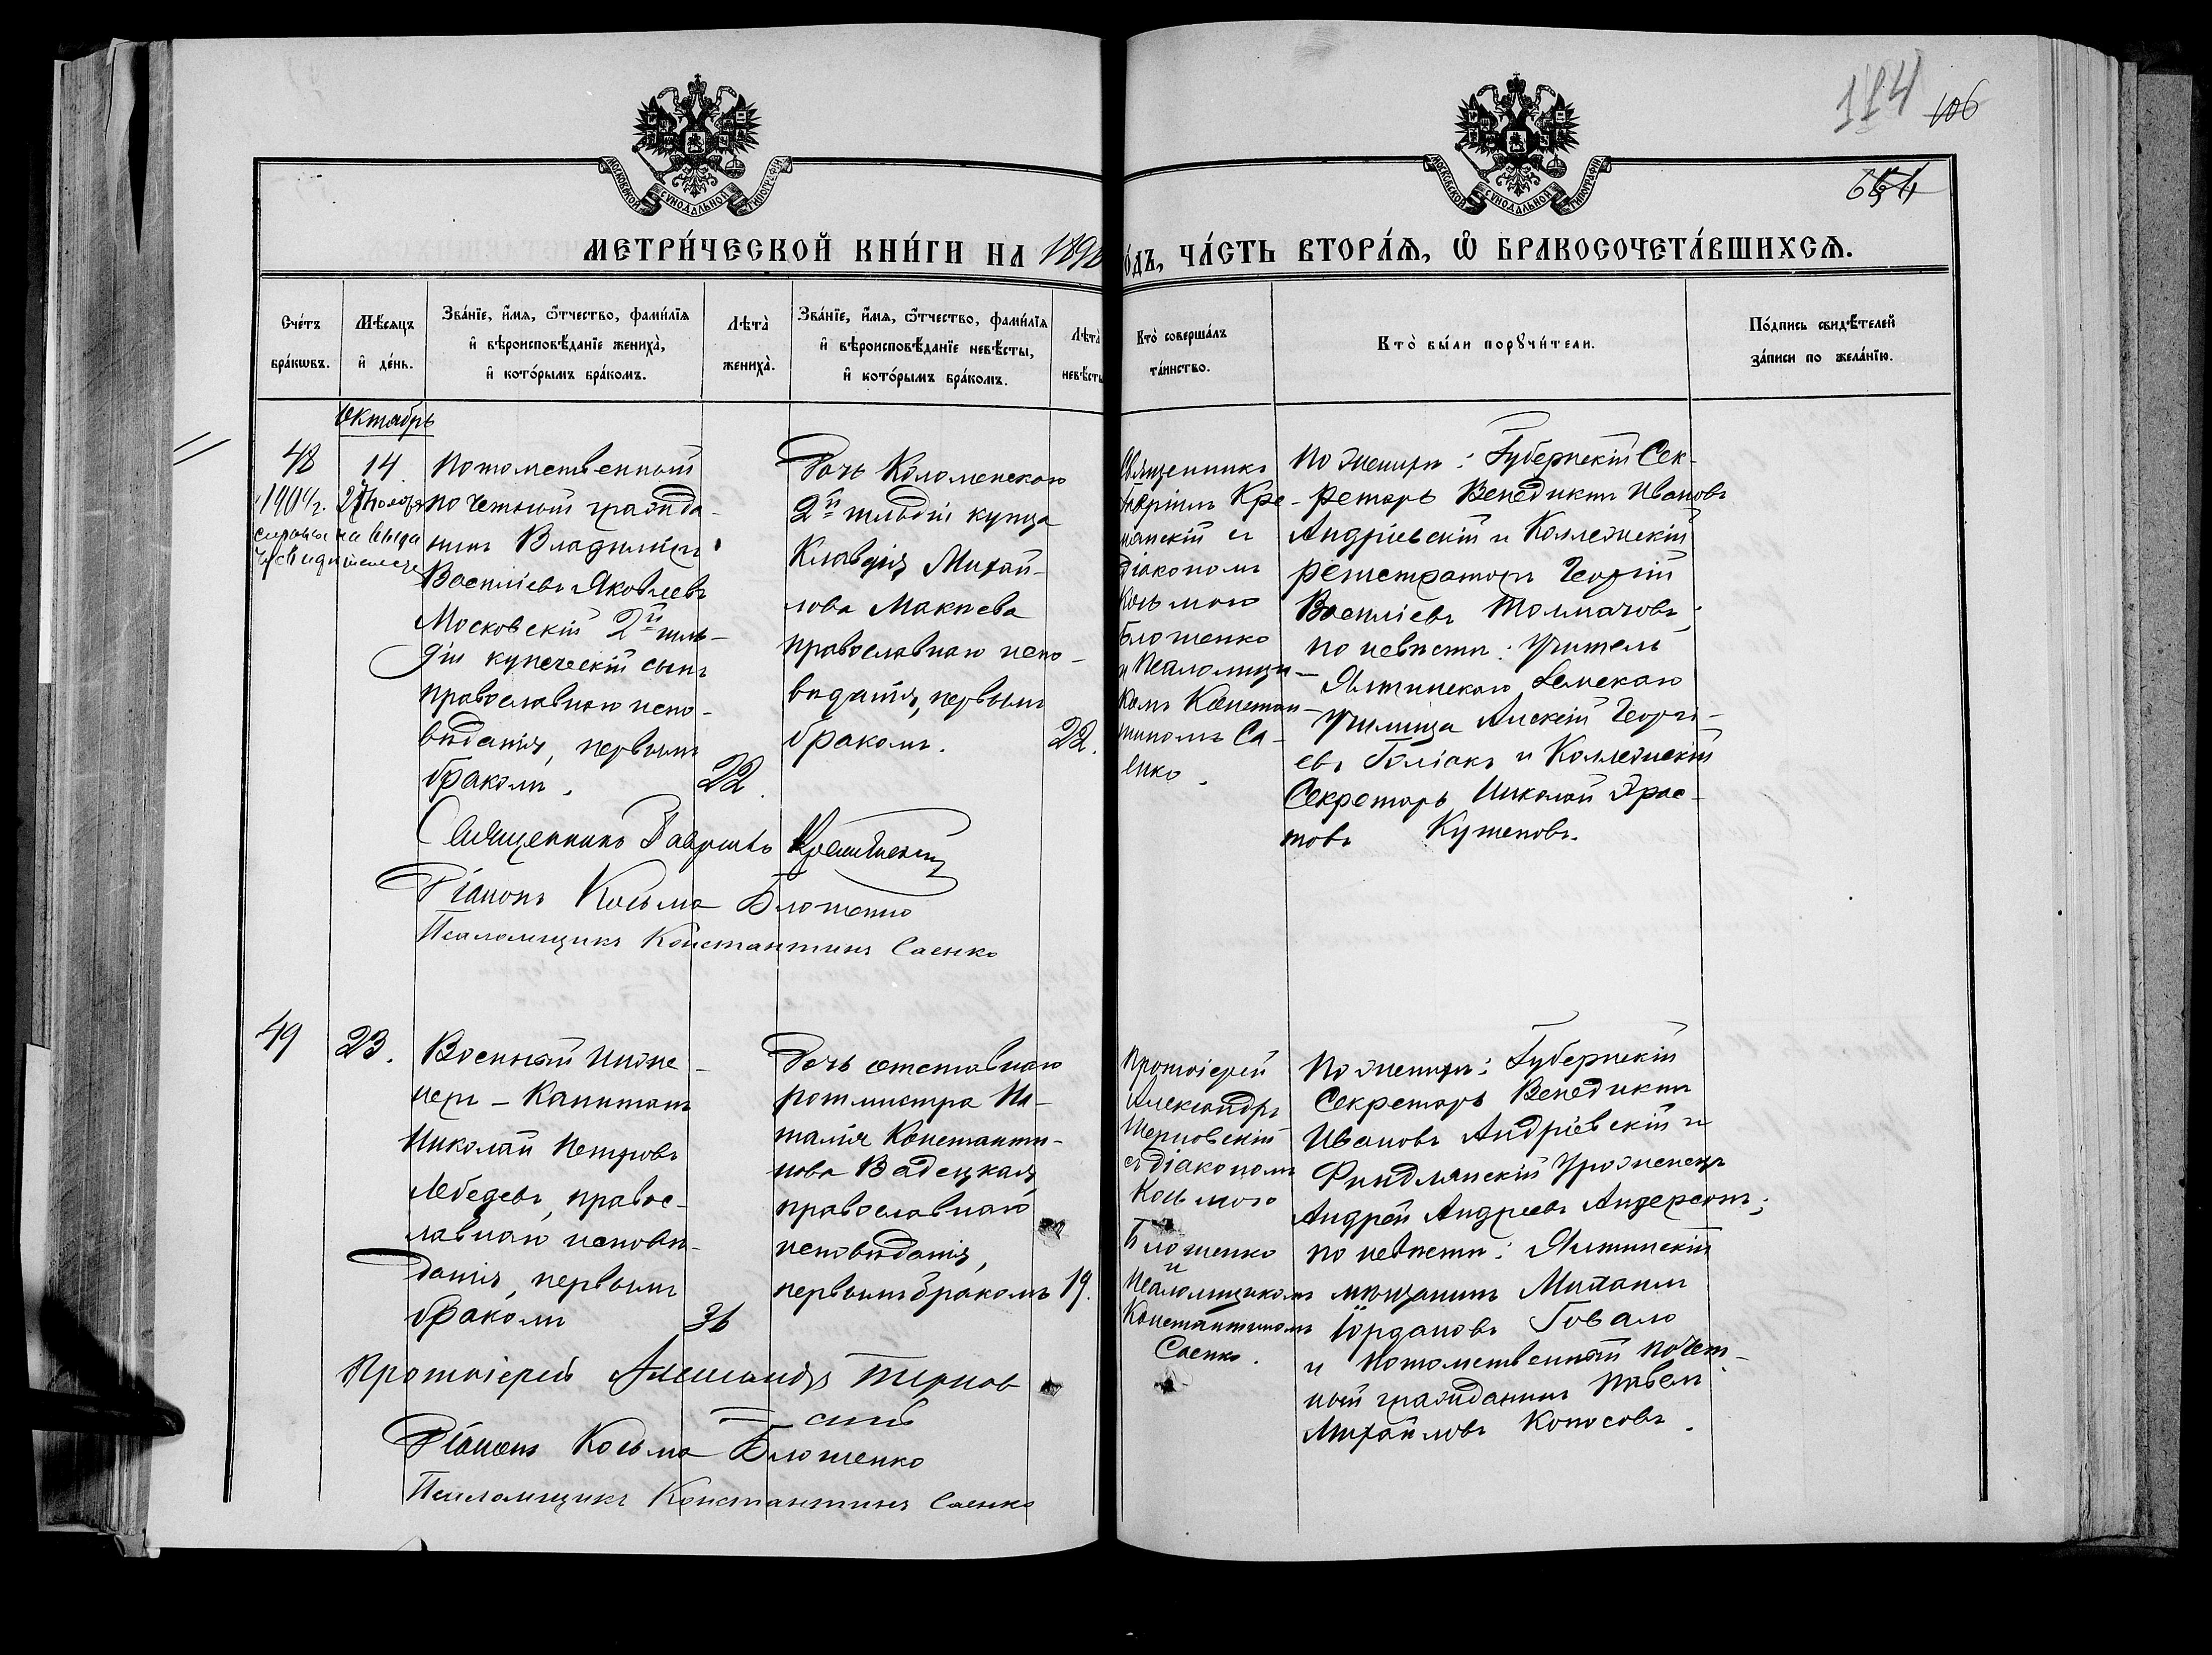 114 106
654
МОСКОВСКОЙ СУНОДАЛЬНОЙ ТИПОГРАФІИ
МОСКОВСКОЙ СУНОДАЛЬНОЙ ТИПОГРАФІИ
МЕТРИ́ЧЕСКОЙ КНИ́ГИ НА 1898
О́ДЪ, ЧА́СТЬ ВТОРА́Я, Ѽ БРАКОСОЧЕТА́ВШИХСЯ.
Сче́тъ
бра́кωвъ.
Мѣ́сяцъ
и҆ де́нь.
Зва́нїе, и҆́мя, ѻ҆́тчество, фами́лїя
и҆ вѣроисповѣ́данїе жениха̀,
и҆ кото́рымъ бра́комъ.
Лѣта̀
жениха̀.
Зва́нїе, и҆́мя, ѻ҆́тчество, фами́лїя
и҆ вѣроисповѣ́данїе невѣ́сты,
и҆ кото́рымъ бра́комъ.
Лѣта̀
невѣ́сты
Кто̀ соверша́лъ
та́инство.
Кто̀ бы́ли порꙋчи́тели.
По́дпись свидѣ́телей
за́писи по жела́нїю.
Октябрь
48
1904 г.
14
27 Ноября
Потомственный
почетный гражда-
нинъ Владиміръ
Васильевъ Яковлевъ
Московскій 2й гиль-
діи купеческій сынъ
православнаго испо-
вѣданія, первымъ
бракомъ.
22.
Дочь Коломенскаго
2й гильдіи купца
Клавдія Михай-
лова Макѣева
православнаго испо-
вѣданія, первымъ
бракомъ.
22.
Священникъ
Гавріилъ Кре-
манскій съ
діакономъ
Косьмою
Блошенко
и Псаломщи-
комъ Констан-
тиномъ Са-
енко.
По женихѣ: Губернскій Сек-
ретарь Венедиктъ Ивановъ
Андріевскій и Коллежскій
регистраторъ Георгій
Васильевъ Толмачовъ;
по невѣстѣ: Учитель
Ялтинскаго Земскаго
Училища Алексій Георгі-
евъ Голіакъ и Коллежскій
Секретарь Николай Эрас-
товъ Кутеповъ.
Священникъ Гавріилъ
Діаконъ Косьма Блошенко
Псаломщикъ Константинъ Саенко
49
23.
Военный инже-
неръ - Капитанъ
Николай Петровъ
Лебедевъ, правос-
лавнаго исповѣ-
данія, первымъ
бракомъ
36
Дочь отставнаго
ротмистра На-
талія Константи-
нова Вадецкая,
православнаго
исповѣданія,
первымъ бракомъ
19.
Протоіерей
Александръ
Терновскій
съ діакономъ
Косьмою
Блошенко
и
Псаломщикомъ
Константиномъ
Саенко.
По женихѣ: Губернскій
Секретарь Венедиктъ
Ивановъ Андріевскій и
Финдлянскій Уроженецъ
Андрей Андреевъ Андерсонъ;
по невѣстѣ: Ялтинскій
мѣщанинъ Михаилъ
Іордановъ Говало
и Потомственный почет-
ный гражданинъ Павелъ
Михайловъ Коносовъ.
Протоіерей Александръ Тернов
скій
Діаконъ Косьма Блошенко
Псаломщикъ Константинъ Саенко